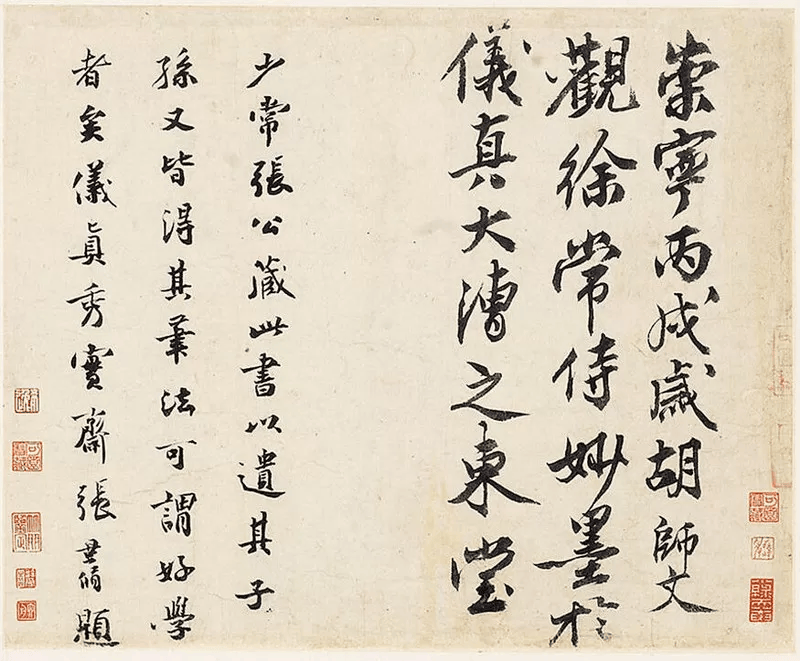 崇寧丙戌歲胡師文
觀徐常侍妙墨於
儀真大漕之東堂
少常張公藏此書以遺其子
孫又皆得其筆法可謂好學
者矣儀真秀實齋張題